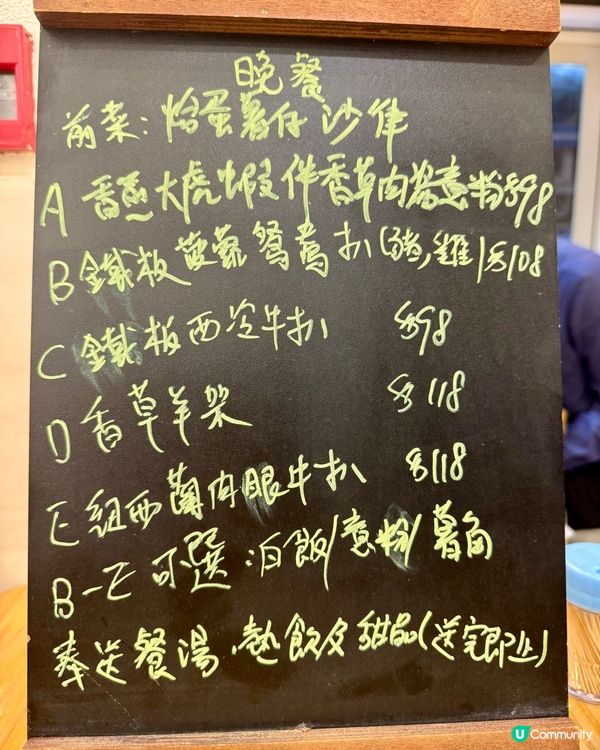 晚餐
前菜：烚蛋薯仔沙律
A 香煎大虎蝦伴香草肉醬意粉$98
B 鐵板菠蘿鴛鴦扒(豬,雞)$108
C 鐵板西冷牛扒 $98
D 香草羊架 $118
E 紐西蘭肉眼牛扒 $118
B-E 可選：白飯/意粉/薯角
奉送餐湯,熱飲及甜品(送完即止)
U Community